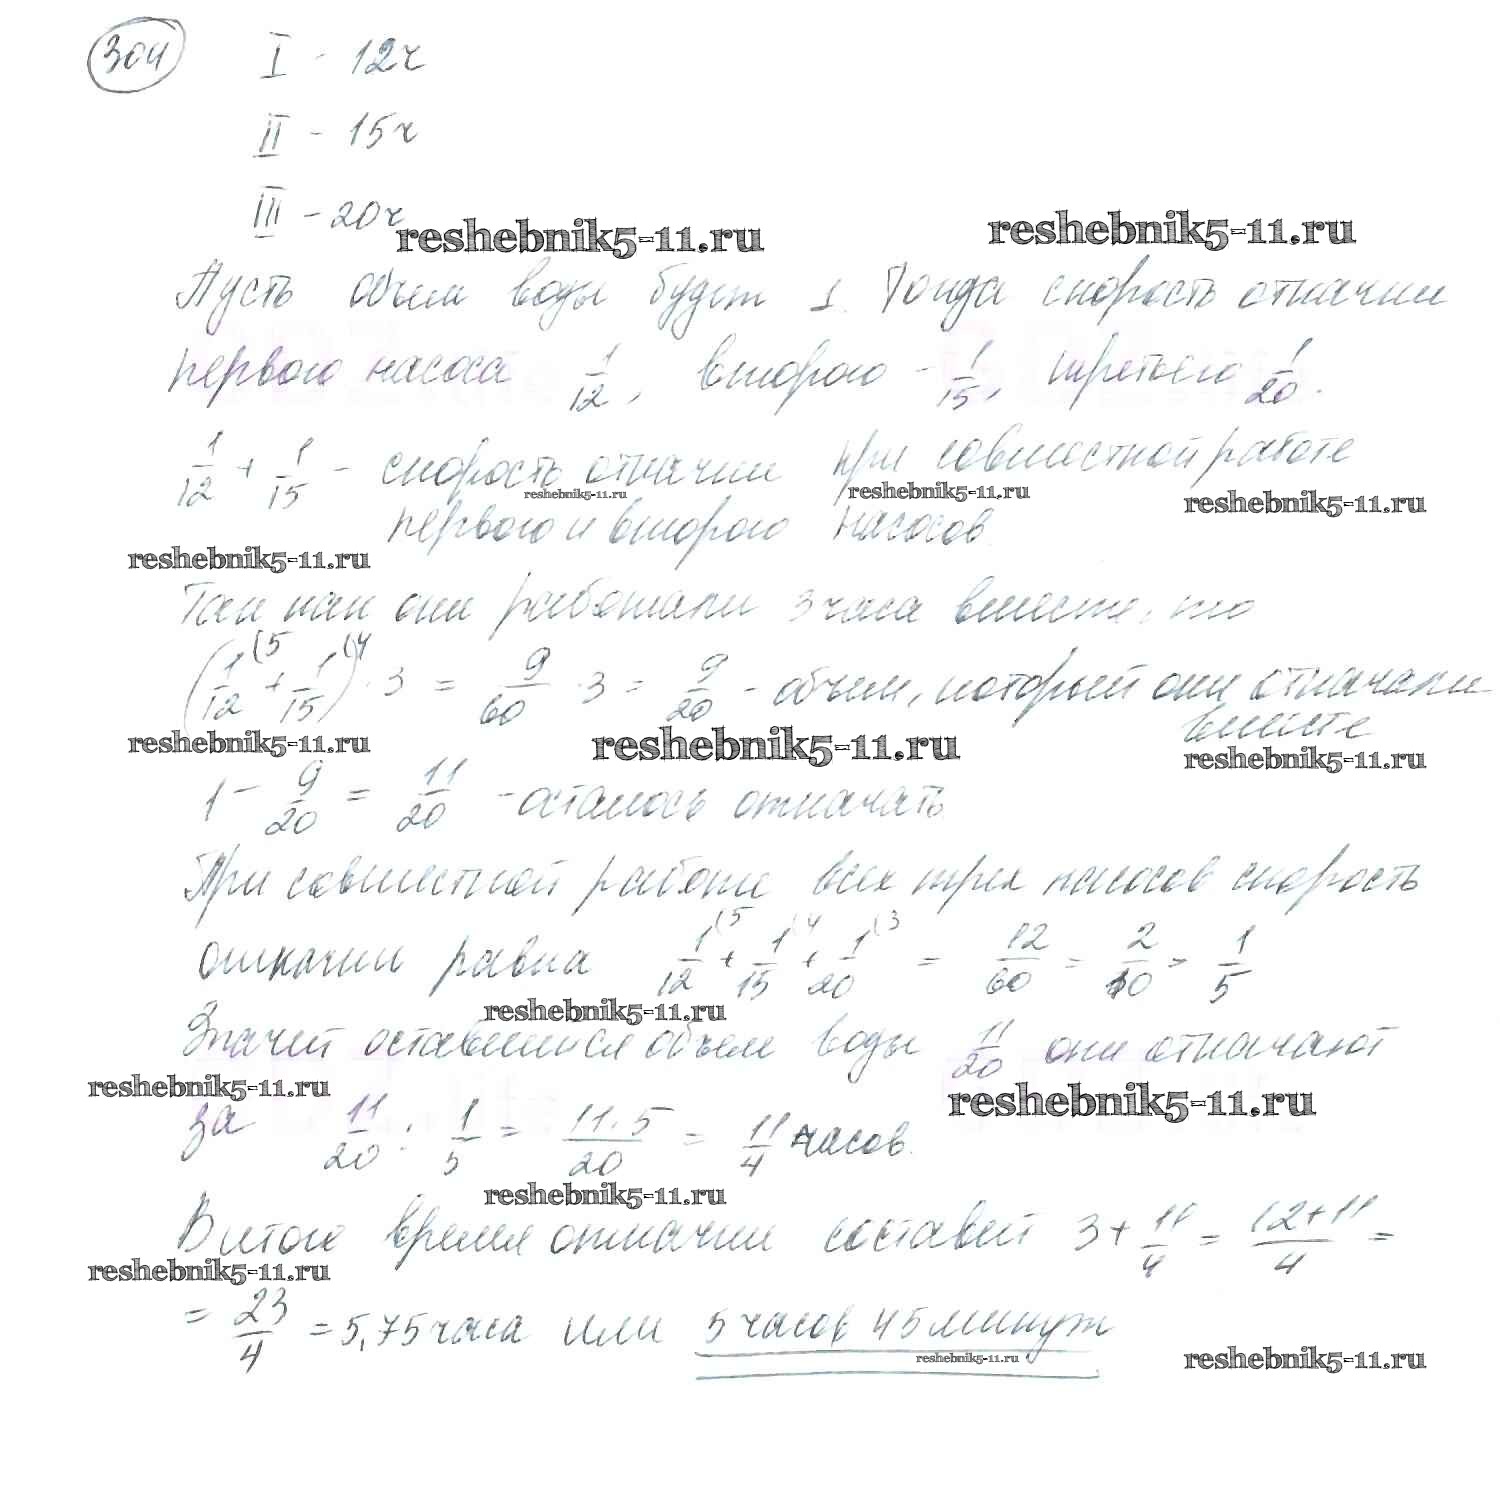 304 I - 12ч
II - 15ч
III - 20ч
reshebnik5-11.ru reshebnik5-11.ru
Пусть объем воды будет 1. Тогда скорость откачки
первого насоса 1/12, второго - 1/15, третьего 1/20.
1/12 + 1/15 - скорость откачки при совместной работе
reshebnik5-11.ru reshebnik5-11.ru reshebnik5-11.ru
первого и второго насосов.
reshebnik5-11.ru
Так как они работали 3 часа вместе, то
(1/12 (5 + 1/15 (4) · 3 = 9/60 · 3 = 9/20 - объем, который они откачали
вместе
reshebnik5-11.ru reshebnik5-11.ru reshebnik5-11.ru
1 - 9/20 = 11/20 - осталось откачать.
При совместной работе всех трех насосов скорость
откачки равна 1/12 (5 + 1/15 (4 + 1/20 (3 = 12/60 = 2/10 = 1/5
reshebnik5-11.ru
Значит оставшийся объем воды 11/20 они откачают
reshebnik5-11.ru reshebnik5-11.ru
за 11/20 : 1/5 = 11·5/20 = 11/4 часов.
reshebnik5-11.ru
В итоге время откачки составит 3 + 11/4 = 12+11/4 =
reshebnik5-11.ru
= 23/4 = 5,75 часа или 5 часов 45 минут
reshebnik5-11.ru reshebnik5-11.ru